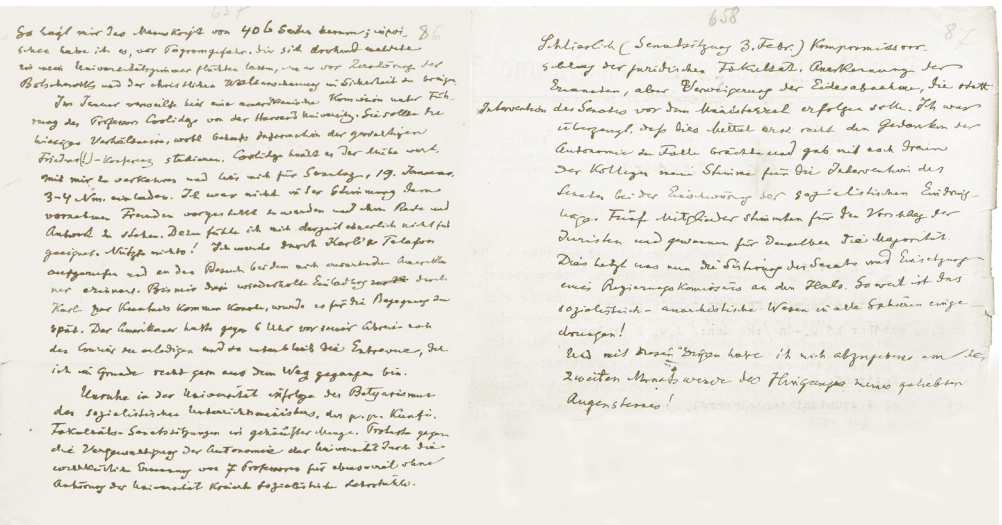 657
86
So liegt mir das Manuskript von 406 Seiten herum; inzwi-
schen habe ich es, vor Pogromgefahr, die sich drohend meldete
in mein Universitätszimmer flüchten lassen, um er vor Zerstörung der
Bolschewiks und der christlichen Weltanschauung in Sicherheit zu bringen.
Im Januar verweilte hier eine amerikanische Komission unter Füh-
rung des Professors Coolidge von der Harvard University. Sie sollten die
hiesigen Verhältnisse, wohl behufs Information der
Friedens(!)-Konferenz studieren. Coolidge hielt es der Mühe wert,
mit mir zu verkehren und liess mich für Sonntag, 19. Januar,
3-4 Nm. einladen. Ich war nicht in der Stimmung dem
vornehmen Fremden vorgestellt zu werden und ihm Rede und
Antwort zu stehen. Dazu fühle ich mich derzeit innerlich nicht
geeignet. Nützte nichts! Ich wurde durch Karl's Telefon
aufgerufen und an den Besuch bei dem mich erwartenden Amerika-
ner erinnert. Bis mir diese wiederholte Einladung durch
Karl zur Kenntnis kommen konnte, wurde es für die Begegnung zu
spät. Der Amerikaner hatte gegen 6 Uhr vor seiner Abreise noch
den Courier zu erledigen und so unterblieb die Entrevue, der
ich im Grunde recht gern aus dem Weg gegangen bin.
Unruhe in der Universität infolge des
des sozialistischen Unterrichtsministers, des p. p. Kunfi.
Fakultäts-Senatssitzungen in gehäufter Menge. Proteste gegen
die Vergewaltigung der Autonomie der Universität durch die
willkürliche Ernennung von 7 Professoren für ebensoviel ohne
Anhörung der Universität kreierte sozialistische Lehrstühle.
658
87
Schliesslich (Senatssitzung 3. Febr.) Kompromissvor-
schlag der juridischen Fakultät. Anerkennung der
Ernannten, aber Verweigerung der Eidesabnahme, die statt
Intervention des Senates vor dem Ministerial erfolgen solle. Ich war
überzeugt, dass dies Mittel erst recht den Gedanken der
Autonomie zu Falle brächte und gab mit noch dreien
der Kollegen meine Stimme für die Intervention des
Senates bei der Einschwörung der sozialistischen Eindring-
linge. Fünf Mitglieder stimmten für den Vorschlag der
Juristen und gewannen für denselben die Majorität.
Dies hetzt uns nun die Sistierung des Senats und Einsetzung
eines Regierungskomissärs an den Hals. So weit ist das
sozialistisch-anarchistische Wesen in alle Sphären einge-
drungen!
Und mit diesen Dingen habe ich mich abzugeben an der
zweiten Monatswende des Hinganges meines geliebten
Augensternes!